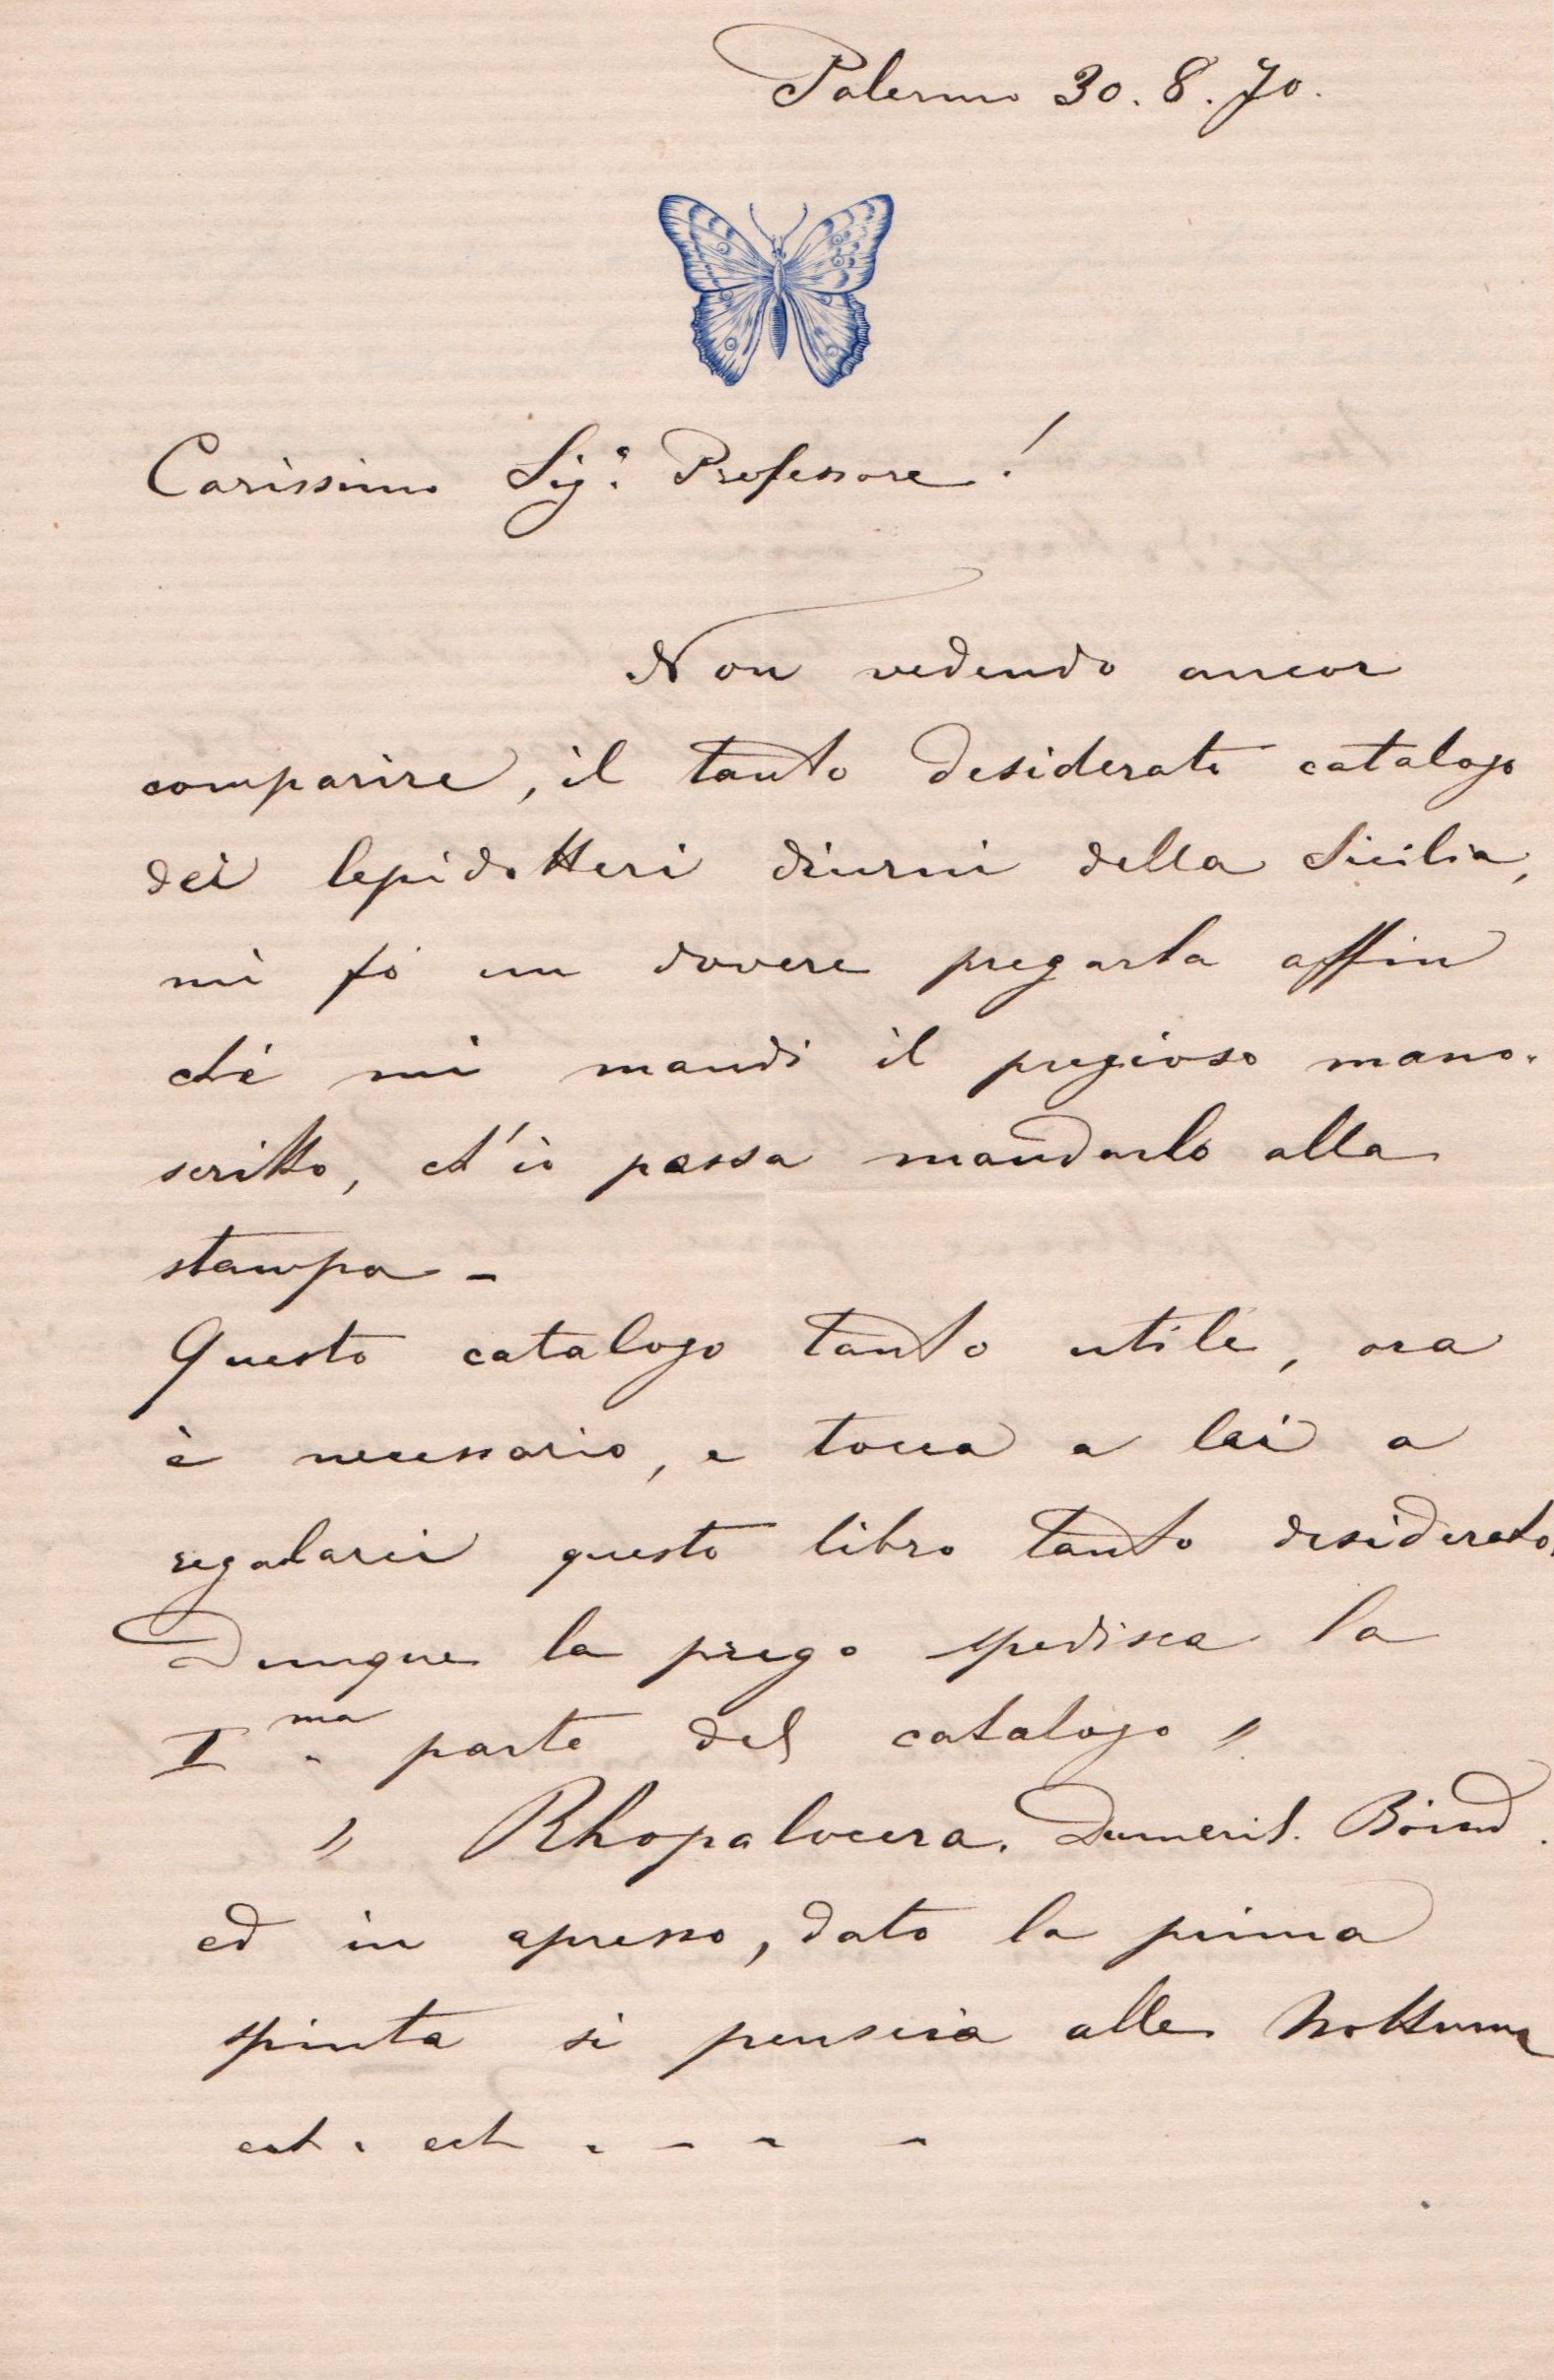 Palermo 30. 8. 70.
Carissimo Sigr. Professore!
Non vedendo ancor
comparire, il tanto desiderato catalogo
dei lepidotteri diurni della Sicilia,
mi fò un dovere pregarla affin
ché mi mandi il pregioso mano-
scritto, ch'io possa mandarlo alla
stampa -
Questo catalogo tanto utile, ora
è necessario, e tocca a lei a
regalarci questo libro tanto desiderato.
Dunque la prego spedisca la
I ma parte del catalogo "
" Rhopalocera. Dumeril. Boisd.
ed in apresso, dato la prima
spinta si penserà alle Notturne
ect. ect . - - -